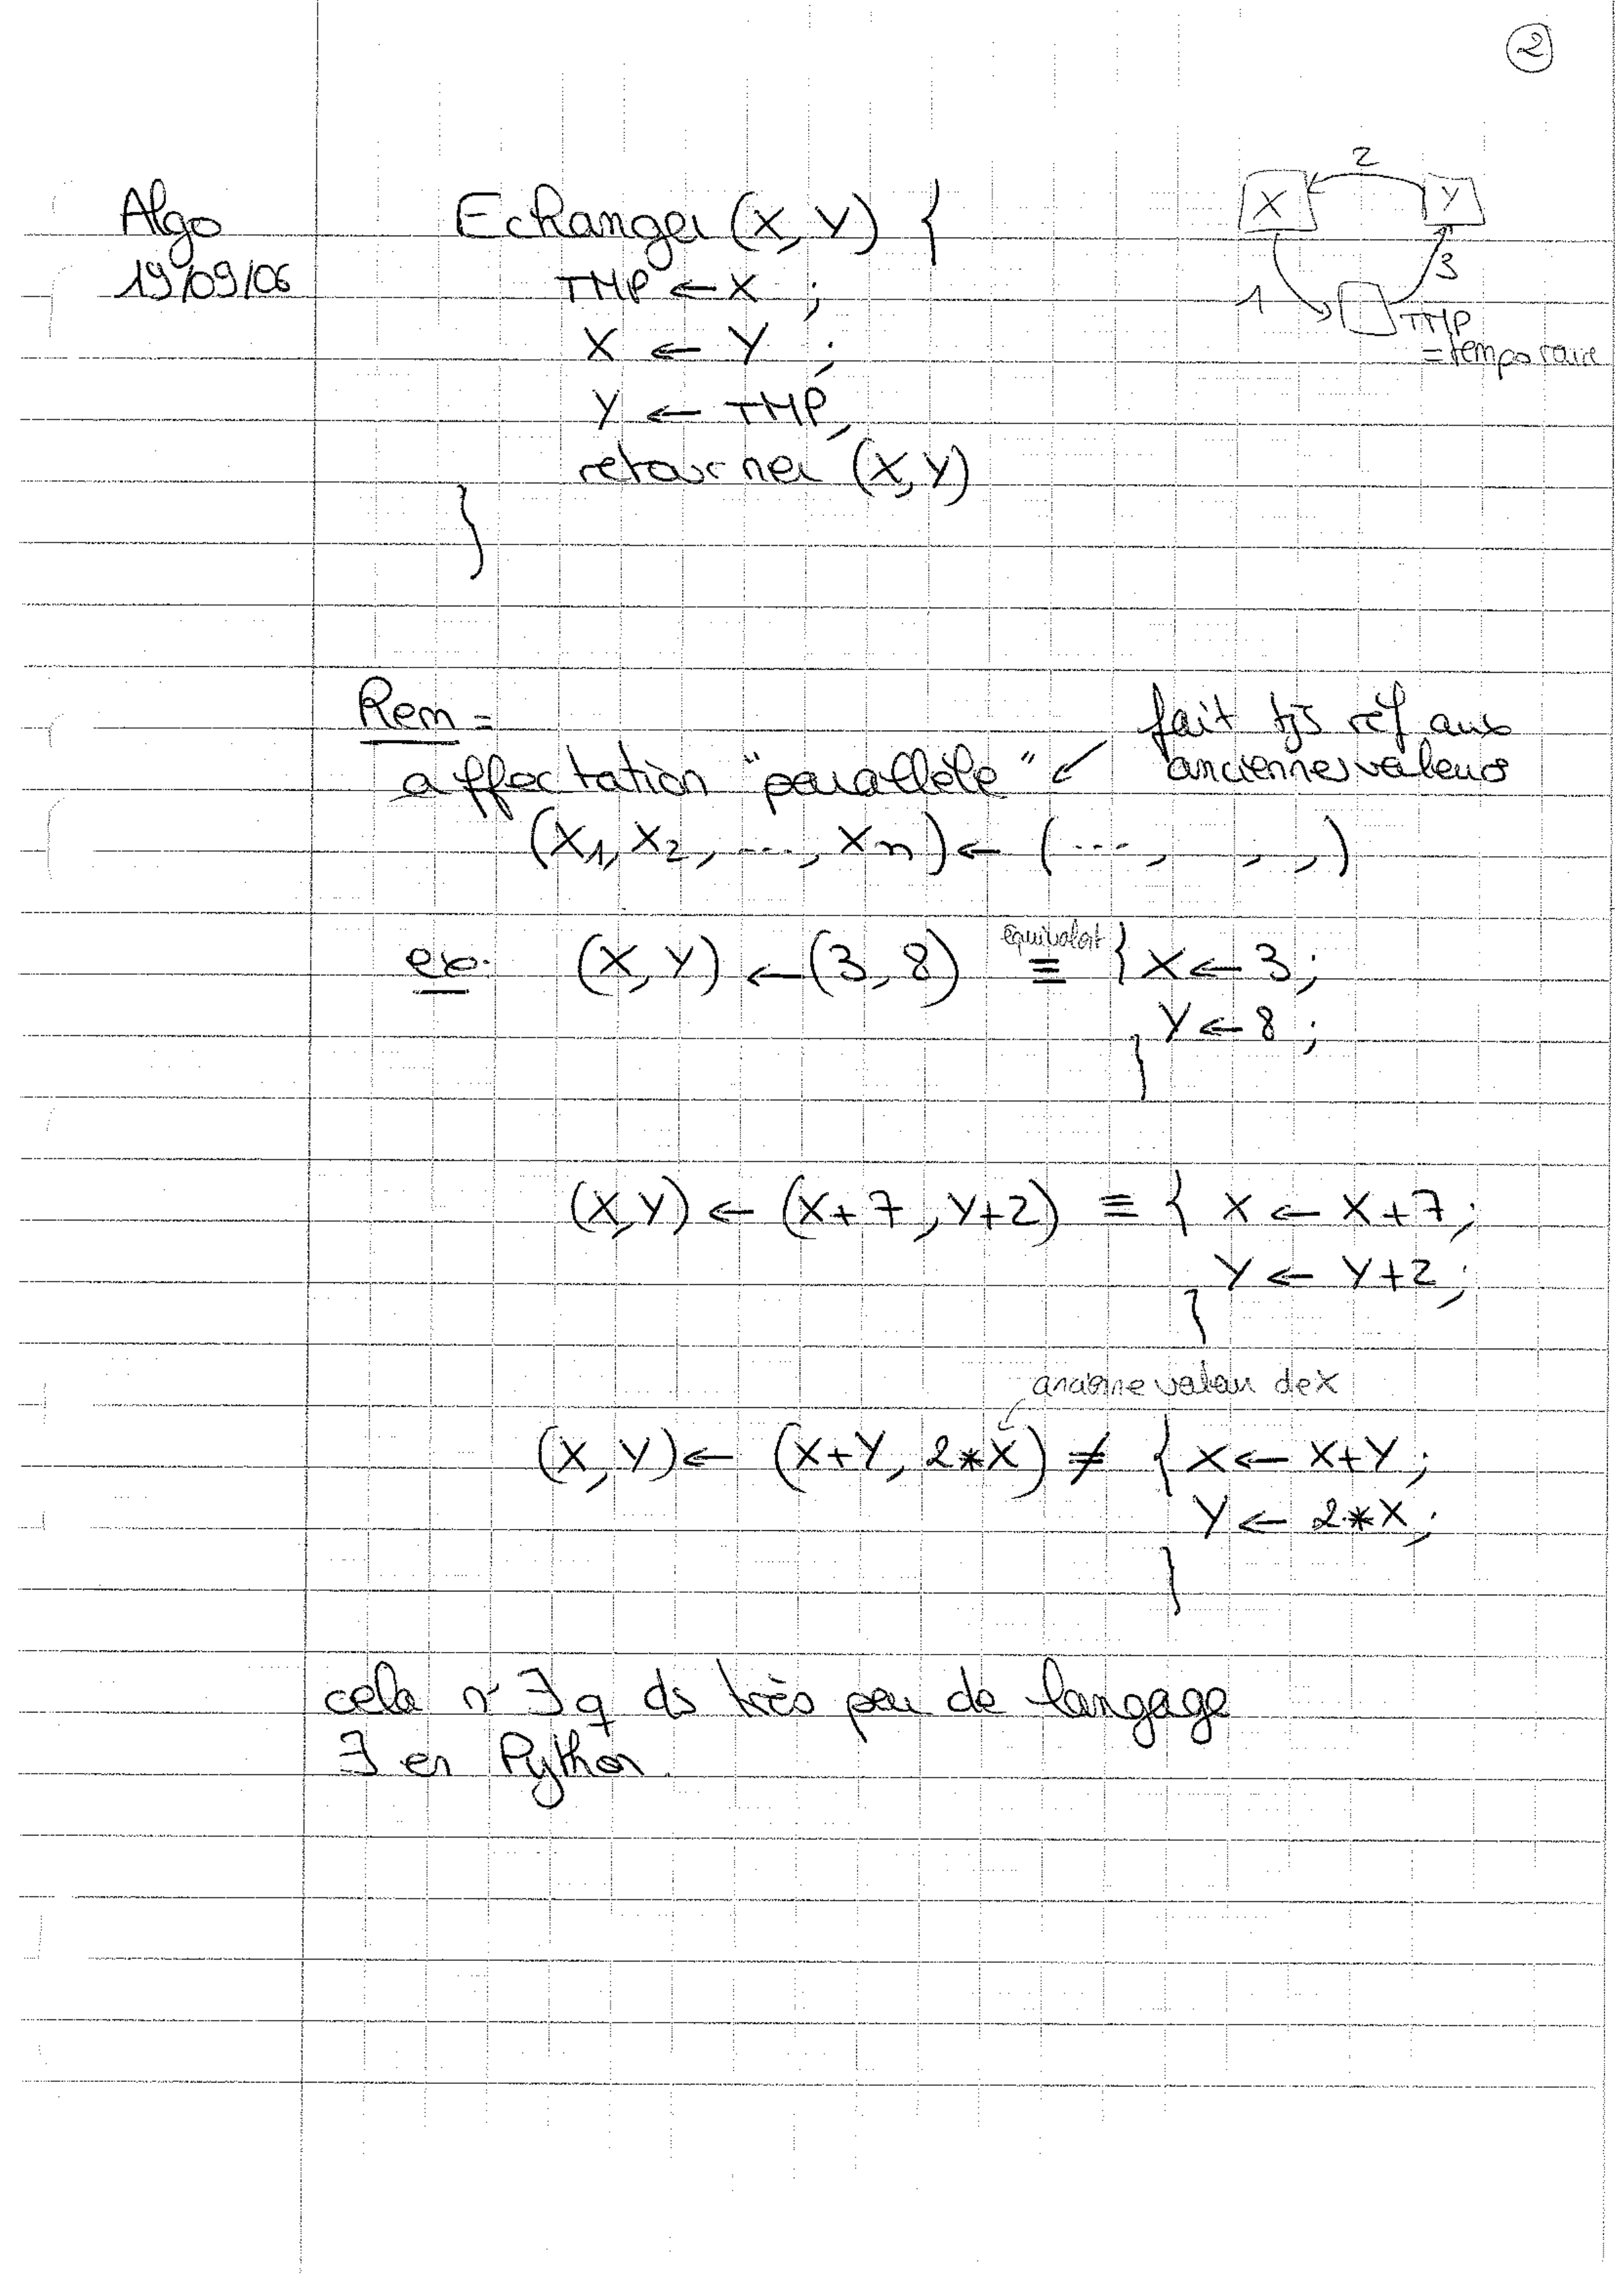 2
Algo
19/09/06
Echanger (X, Y) {
TMP ← X ;
X ← Y ;
Y ← TMP,
retourner (X,Y)
}
X 2 Y
1 3
TMP
= temporaire
Rem =
affectation "parallèle" ↙ fait tjs réf aux
anciennes valeurs
(X1, X2, ..., Xn) ← (... , , , )
ex: (X, Y) ← (3, 8) équivalent ≡ { X ← 3 ;
Y ← 8 ;
}
(X,Y) ← (X+7, Y+2) ≡ { X ← X+7 ;
Y ← Y+2 ;
}
ancienne valeur de X
(X, Y) ← (X+Y, 2*X) ≠ { X ← X+Y ;
Y ← 2*X ;
}
cela n'∃ q ds très peu de langage
∃ en Python.